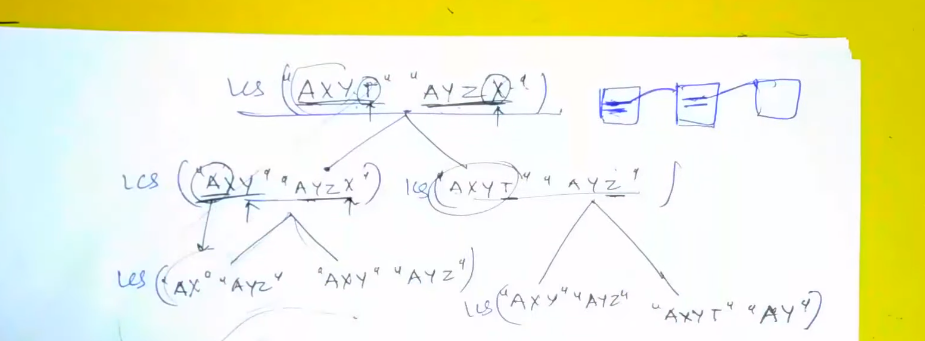 LCS ("AXYT" "AYZX")
LCS ("AXY" "AYZX") LCS ("AXYT" "AYZ")
LCS ("AX" "AYZ" "AXY" "AYZ")
LCS ("AXY" "AYZ" "AXYT" "AY")